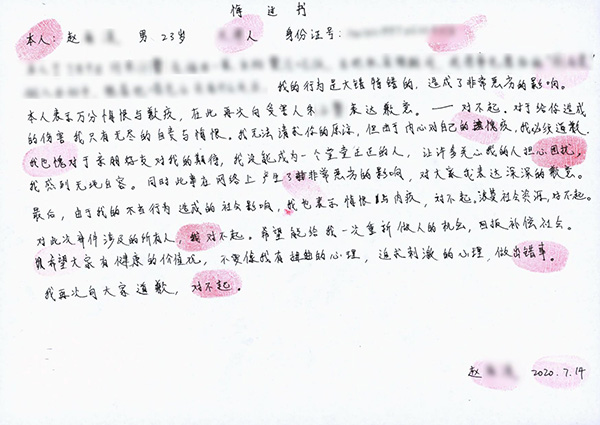 悔过书
本人:赵 男 23岁 人 身份证号:
我的行为是大错特错的,造成了非常恶劣的影响。
本人表示万分悔恨与歉疚,在此再次向受害人朱 表达歉意。——对不起。对于给你造成
的伤害我只有无尽的自责与悔恨。我无法请求你的原谅,但由于内心对自己的愧疚,我必须道歉.
我也愧对于亲朋好友对我的期待,我没能成为一个堂堂正正的人,让许多关心我的人担心困扰,
我感到无地自容。同时此事在网络上产生了非常恶劣的影响,对大家我表达深深的歉意。
最后,由于我的不当行为造成的社会影响,我也表示悔恨与内疚,对不起。浪费社会资源,对不起。
对此次事件涉及的所有人,对不起。希望能给我一次重新做人的机会,回报补偿社会。
我希望大家有健康的价值观,不要像我有扭曲的心理,追求刺激的心理,做出错事。
我再次向大家道歉,对不起。
赵 2020.7.14